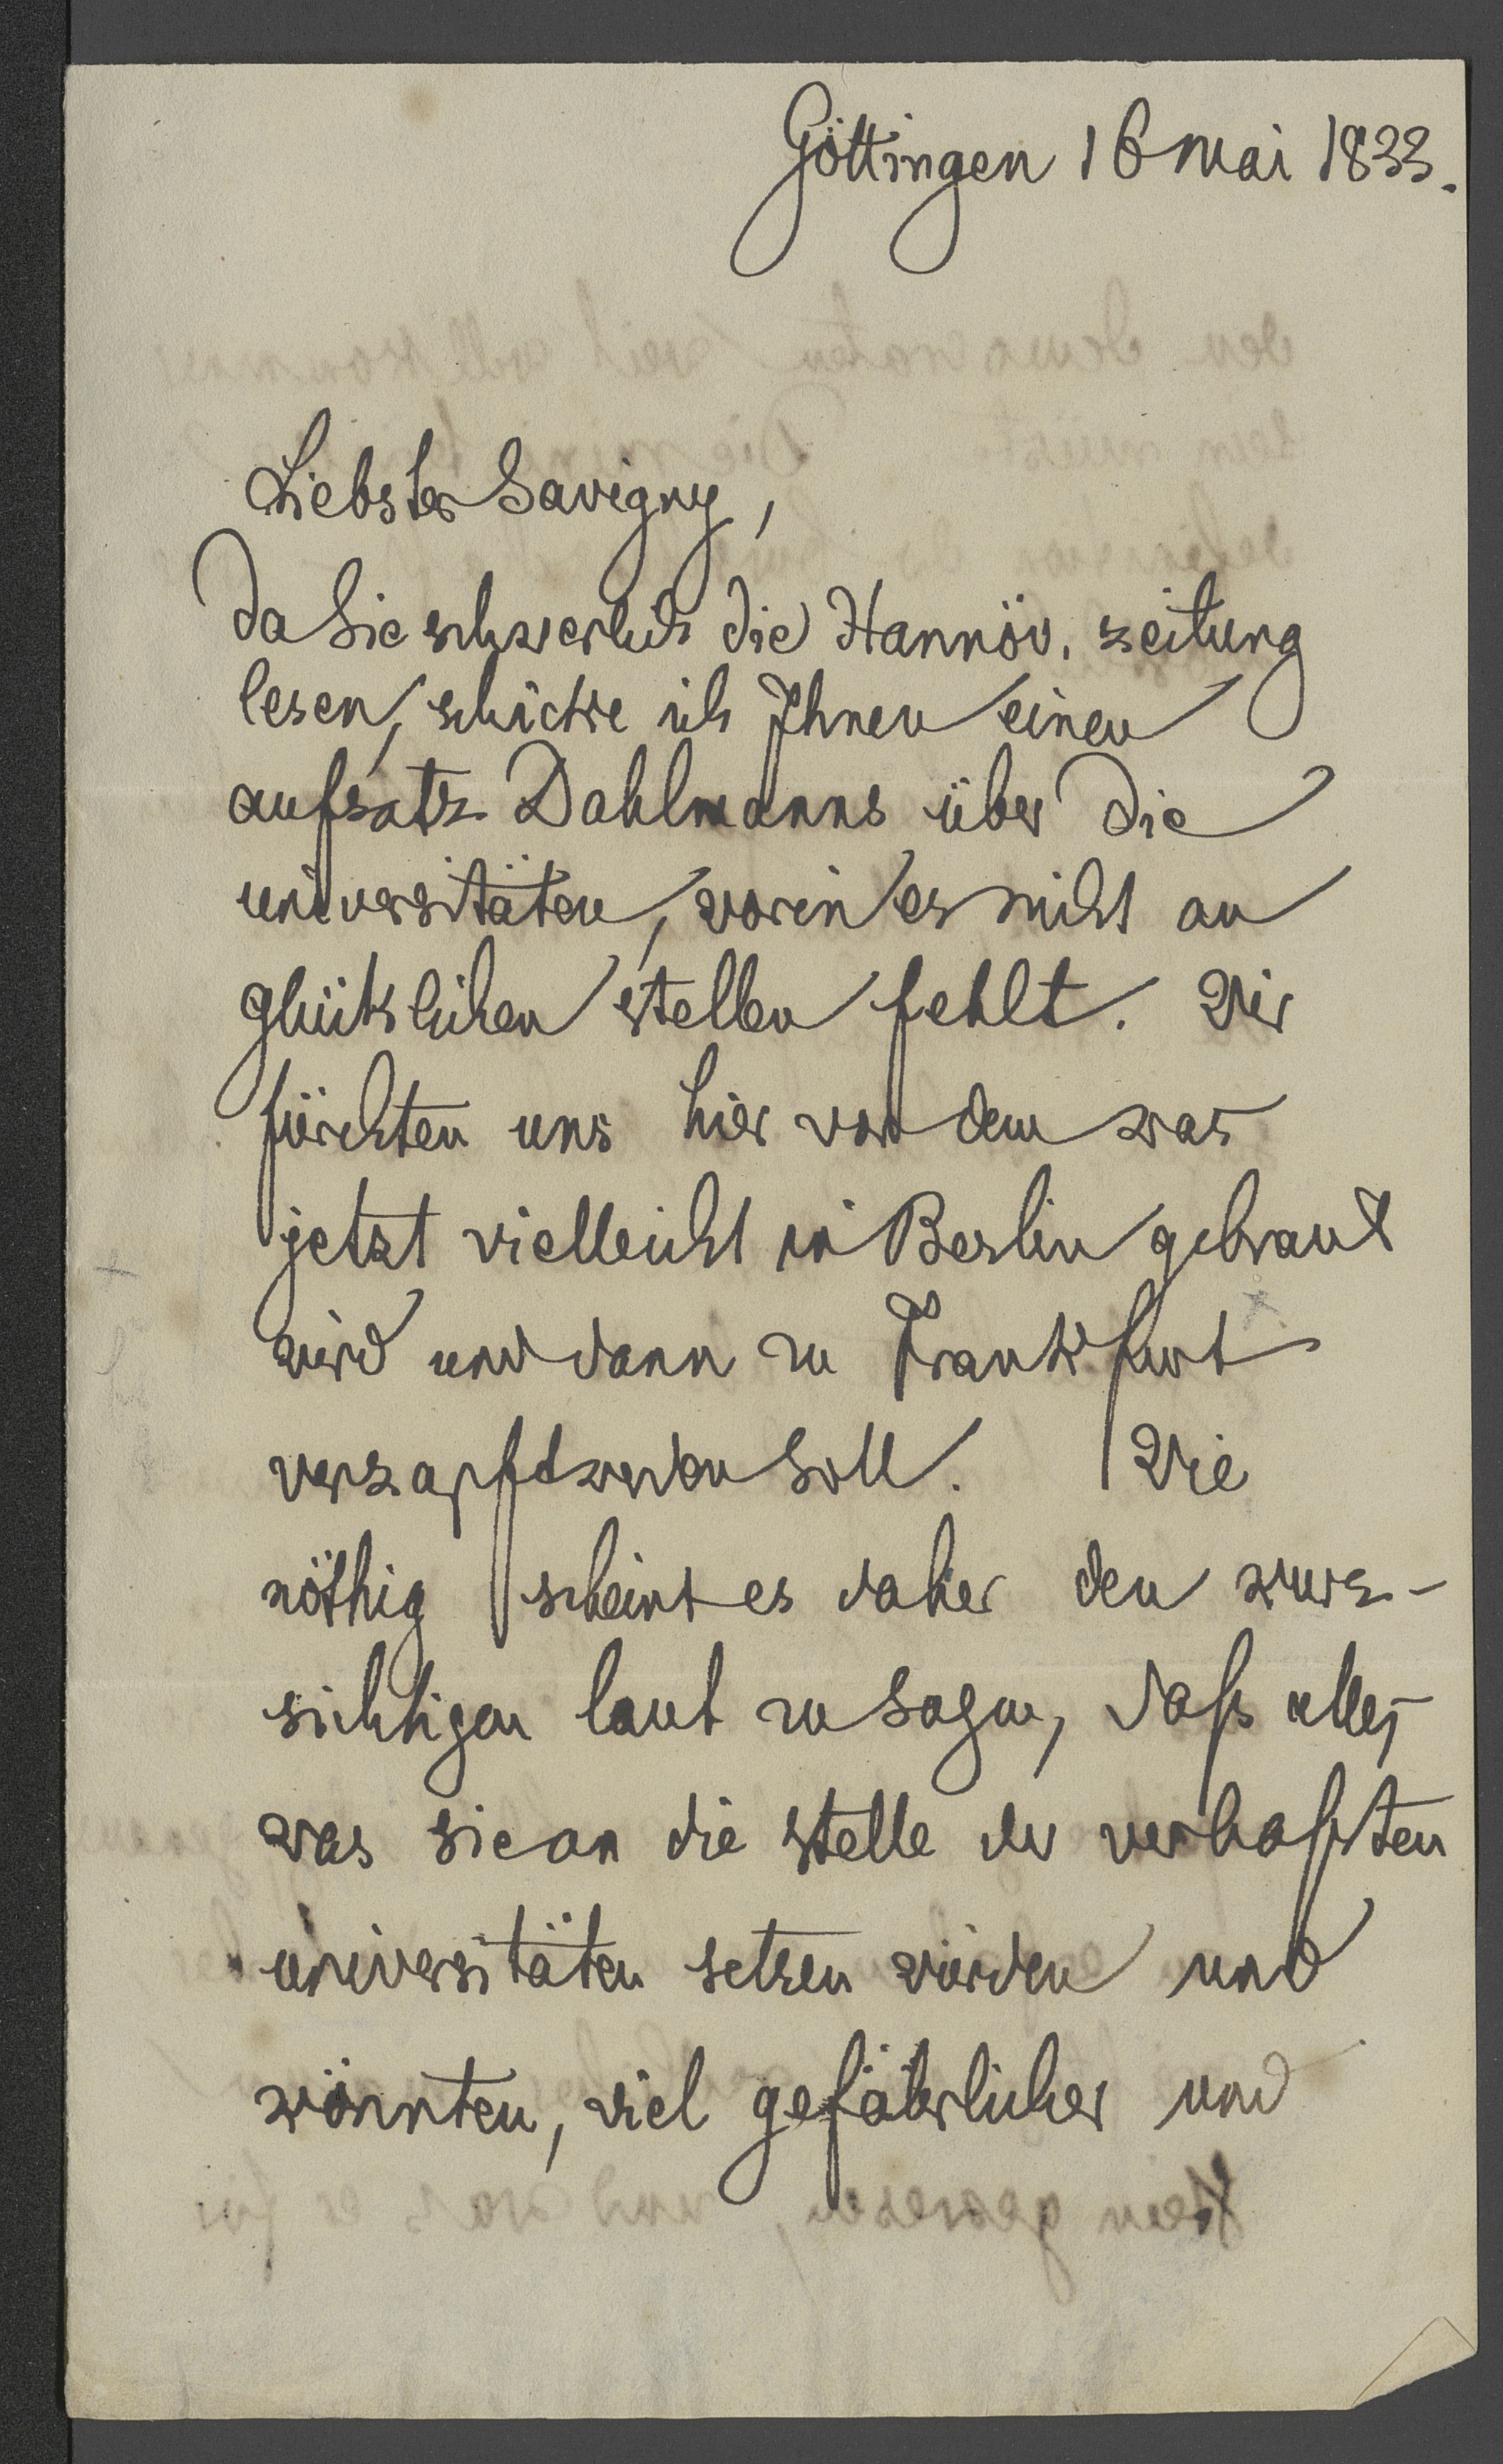 Göttingen 16 mai 1833.
Liebster Savigny,
da Sie schwerlich die Hannöv. zeitung
lesen, schicke ich Ihnen einen
aufsatz Dahlmanns über die
universitäten, worin es nicht an
glücklichen stellen fehlt. Wir
fürchten uns hier vor dem was
jetzt vielleicht in Berlin gebraut
wird und dann zu Frankfurt
verzapft werden soll. Wie
nöthig scheint es daher den kurz-
sichtigen laut zu sagen, daſs alles
was sie an die stelle der verhaſsten
universitäten setzen würden und
könnten, viel gefährlicher und